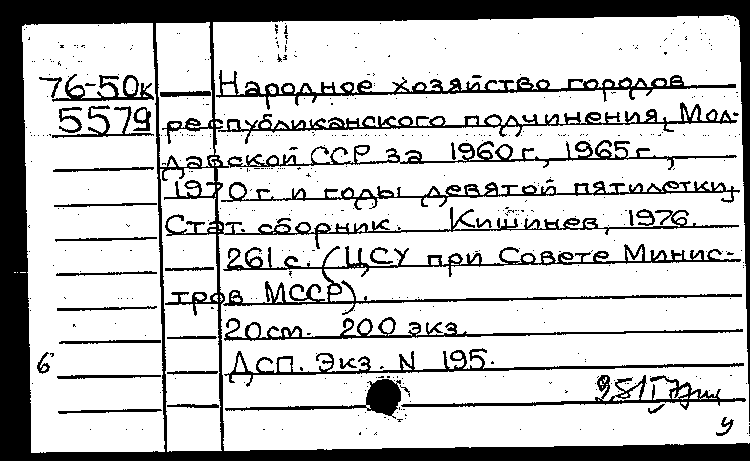 76-50к Народное хозяйство городов
5579 республиканского подчинения Мол-
давской ССР за 1960 г., 1965 г.,
1970 г. и годы девятой пятилетки.
Стат. сборник. Кишинев, 1976.
261 с. (ЦСУ при Совете Минис-
тров МССР).
20 см. 200 экз.
6 Дсп. Экз. N 195.
у